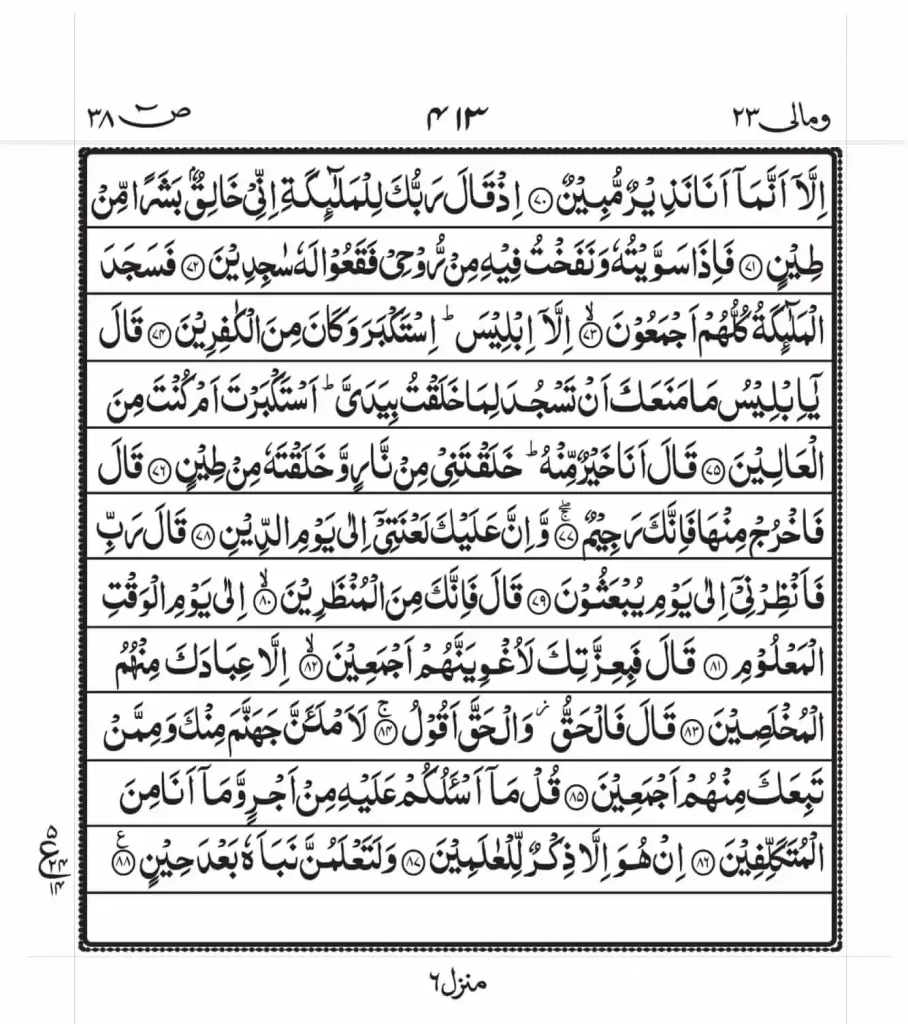 ومالی ۲۳ ۴۱۳ صۤ ۳۸
اِلَّاۤ اَنَّمَاۤ اَنَا نَذِیْرٌ مُّبِیْنٌ ﴿۷۰﴾ اِذْ قَالَ رَبُّكَ لِلْمَلٰٓئِكَةِ اِنِّیْ خَالِقٌۢ بَشَرًا مِّنْ
طِیْنٍ ﴿۷۱﴾ فَاِذَا سَوَّیْتُهٗ وَ نَفَخْتُ فِیْهِ مِنْ رُّوْحِیْ فَقَعُوْا لَهٗ سٰجِدِیْنَ ﴿۷۲﴾ فَسَجَدَ
الْمَلٰٓئِكَةُ كُلُّهُمْ اَجْمَعُوْنَ ﴿۷۳﴾ۙ اِلَّاۤ اِبْلِیْسَ ؕ اِسْتَكْبَرَ وَ كَانَ مِنَ الْكٰفِرِیْنَ ﴿۷۴﴾ قَالَ
یٰۤاِبْلِیْسُ مَا مَنَعَكَ اَنْ تَسْجُدَ لِمَا خَلَقْتُ بِیَدَیَّ ؕ اَسْتَكْبَرْتَ اَمْ كُنْتَ مِنَ
الْعَالِیْنَ ﴿۷۵﴾ قَالَ اَنَا خَیْرٌ مِّنْهُ ؕ خَلَقْتَنِیْ مِنْ نَّارٍ وَّ خَلَقْتَهٗ مِنْ طِیْنٍ ﴿۷۶﴾ قَالَ
فَاخْرُجْ مِنْهَا فَاِنَّكَ رَجِیْمٌ ﴿۷۷﴾ۚۖ وَّ اِنَّ عَلَیْكَ لَعْنَتِیْۤ اِلٰی یَوْمِ الدِّیْنِ ﴿۷۸﴾ قَالَ رَبِّ
فَاَنْظِرْنِیْۤ اِلٰی یَوْمِ یُبْعَثُوْنَ ﴿۷۹﴾ قَالَ فَاِنَّكَ مِنَ الْمُنْظَرِیْنَ ﴿۸۰﴾ۙ اِلٰی یَوْمِ الْوَقْتِ
الْمَعْلُوْمِ ﴿۸۱﴾ قَالَ فَبِعِزَّتِكَ لَاُغْوِیَنَّهُمْ اَجْمَعِیْنَ ﴿۸۲﴾ۙ اِلَّا عِبَادَكَ مِنْهُمُ
الْمُخْلَصِیْنَ ﴿۸۳﴾ قَالَ فَالْحَقُّ ؗ وَ الْحَقَّ اَقُوْلُ ﴿۸۴﴾ۚ لَاَمْلَئَنَّ جَهَنَّمَ مِنْكَ وَ مِمَّنْ
تَبِعَكَ مِنْهُمْ اَجْمَعِیْنَ ﴿۸۵﴾ قُلْ مَاۤ اَسْئَلُكُمْ عَلَیْهِ مِنْ اَجْرٍ وَّ مَاۤ اَنَا مِنَ
الْمُتَكَلِّفِیْنَ ﴿۸۶﴾ اِنْ هُوَ اِلَّا ذِكْرٌ لِّلْعٰلَمِیْنَ ﴿۸۷﴾ وَ لَتَعْلَمُنَّ نَبَاَهٗ بَعْدَ حِیْنٍ ﴿۸۸﴾ؑ
۵
ع ۲۴
۱۴
منزل ۶